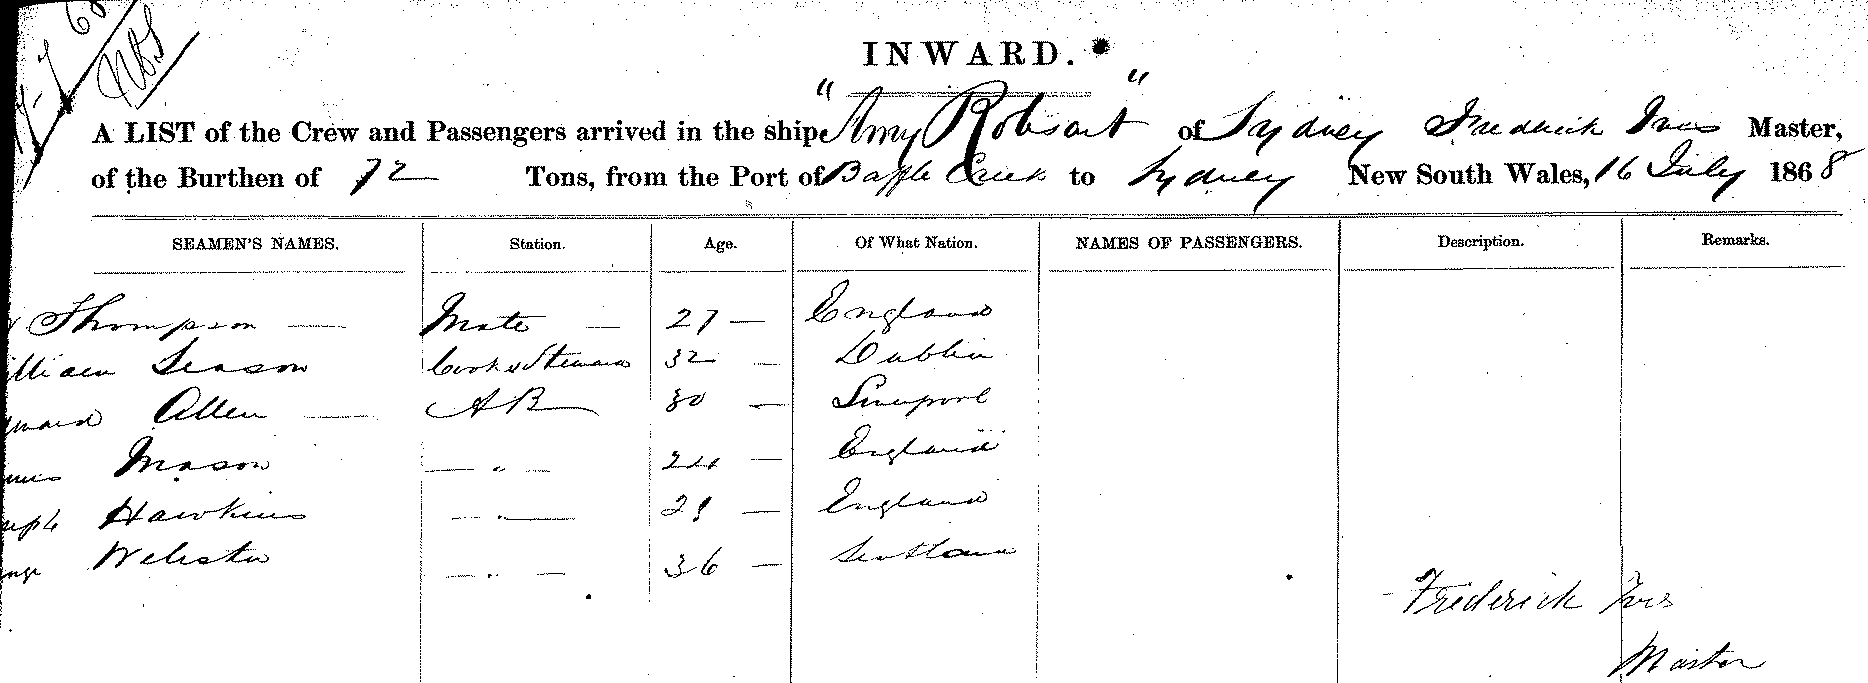 INWARD.
A LIST of the Crew and Passengers arrived in the ship "Amy Robsart" of Sydney Frederick Ives Master,
of the Burthen of 72 Tons, from the Port of Baffle Creek to Sydney New South Wales, 16 July 1868
SEAMEN'S NAMES. Station. Age. Of What Nation. NAMES OF PASSENGERS. Description. Remarks.
Thompson — Mate — 27 — England
illiam Season Cook & Steward 32 — Dublin
dward Allen — AB 30 — Liverpool
Mason — " — 24 — England
seph Hawkins — " — 29 — England
Webster — " — 36 — Scotland
Frederick Ives
Master